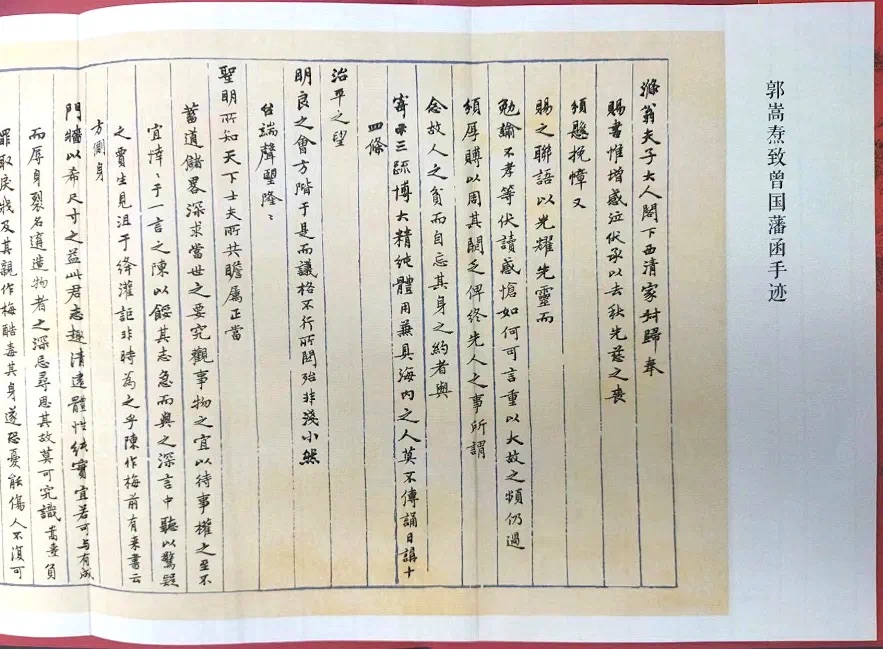 郭嵩焘致曾国藩函手迹
滌翁夫子大人閣下西清家尌歸奉
賜書惟增感泣伏承以去秋先慈之喪
頒懸挽幛又
賜之聯語以光耀先靈而
勉諭不孝等伏讀感愴如何可言重以大故之頻仍過
頒厚賻以周其闕乏俾終先人之事所謂
念故人之貧而自忘其身之約者與
寄示三疏博大精純體用兼具海內之人莫不傳誦日講十
四條
治平之望
明良之會方階于是而議格不行所關殆非淺小然
台端聲望隆隆
聖明所知天下士夫所共瞻屬正當
蓄道儲畧深求當世之要究觀事物之宜以待事權之至不
宜悻悻于一言之陳以餒其志急而與之深言中聽以驚疑
之賈生見沮于絳灌詎非時為之乎陳作梅前有來書云
方側身
門牆以希尺寸之益此君志趣清遠體性純實宜若可与有成
而辱身裂名適造物者之深忌尋思其故莫可究識嵩燾負
罪取戾戕及其親作梅酷毒其身遂恐憂能傷人不復可